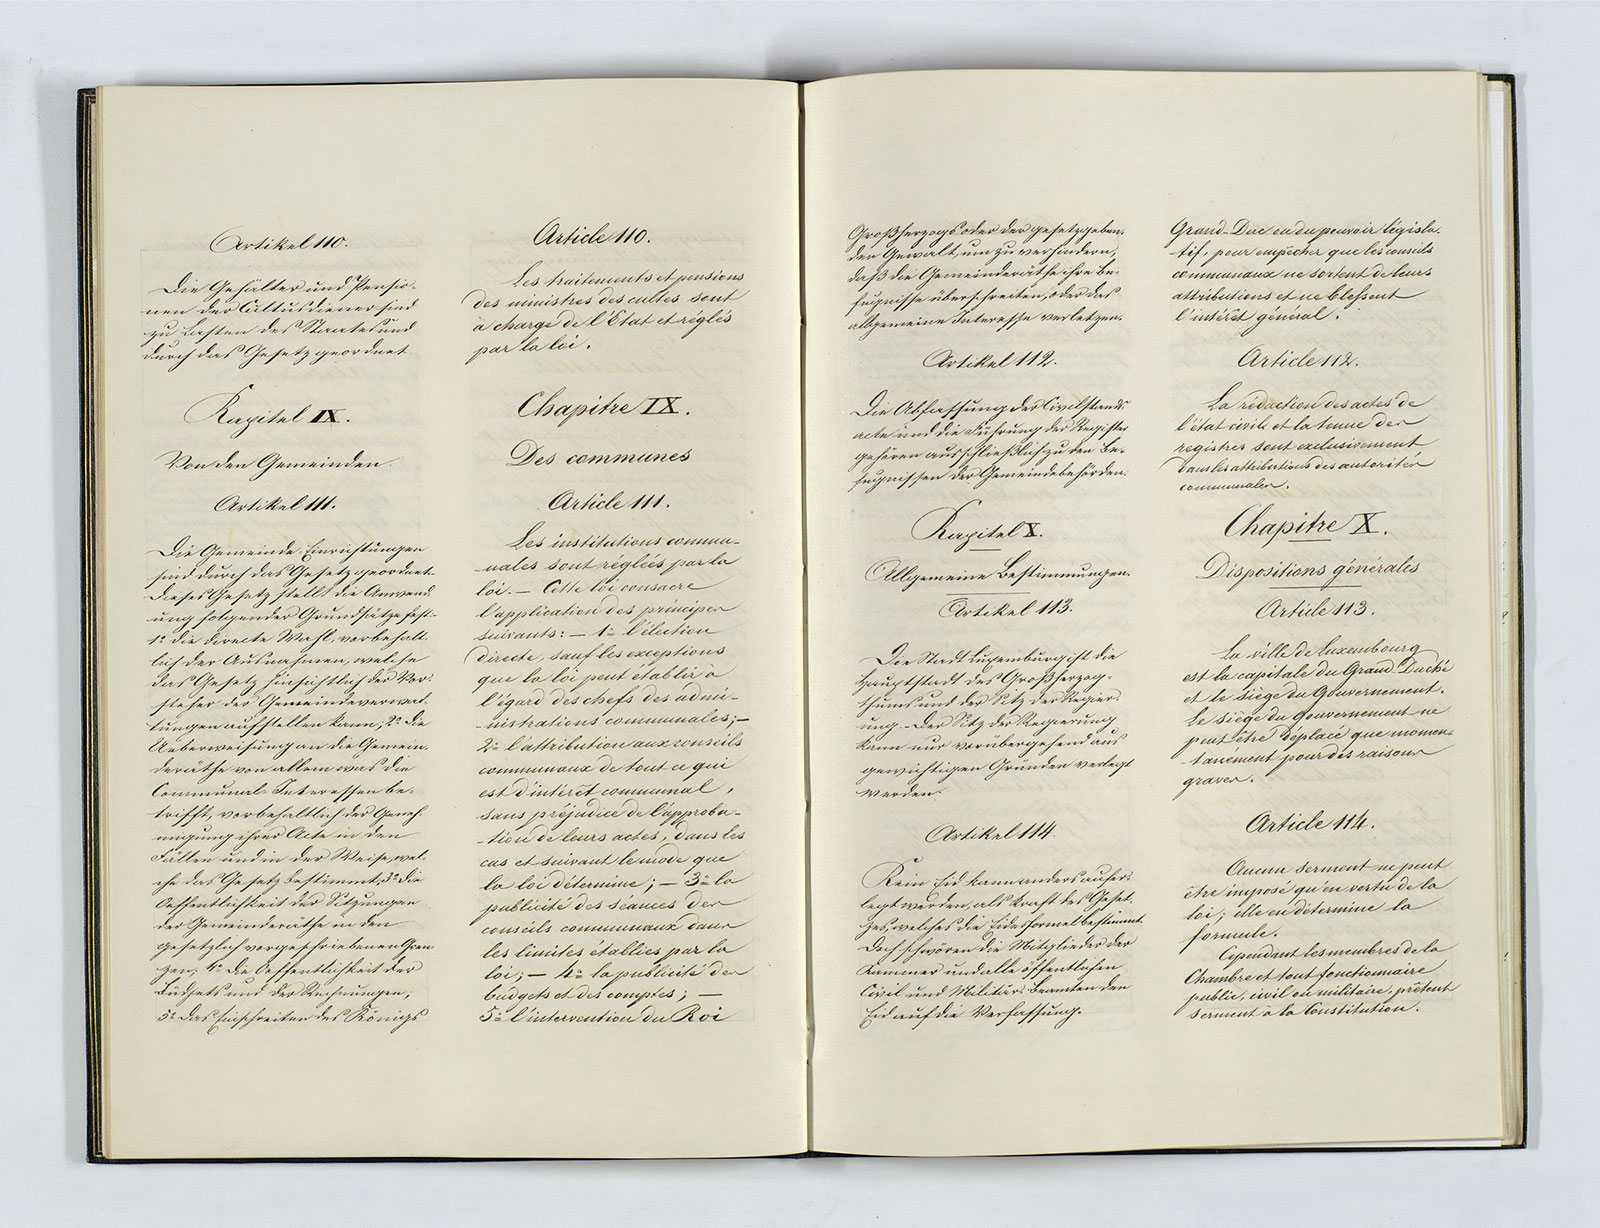 Artikel 110.
Die Gehälter und Pensio-
nen der Cultusdiener sind
zu Lasten des Staates und
durch das Gesetz geordnet.
Kapitel IX.
Von den Gemeinden.
Artikel 111.
Die Gemeinde-Einrichtungen
sind durch das Gesetz geordnet.
Dieses Gesetz stellt die Anwend-
ung folgender Grundsätze fest:
1º die directe Wahl, vorbehalt-
lich der Ausnahmen, welche
das Gesetz hinsichtlich der Vor-
steher der Gemeindeverwal-
tungen aufstellen kann; 2º die
Ueberweisung an die Gemein-
deräthe von allem was die
Communal-Interessen be-
trifft, vorbehaltlich der Geneh-
migung ihrer Acte in den
Fällen und in der Weise, wel-
che das Gesetz bestimmt; 3º die
Oeffentlichkeit der Sitzungen
der Gemeinderäthe in den
gesetzlich vorgeschriebenen Gren-
zen; 4º die Oeffentlichkeit der
Büdgets und der Rechnungen;
5º das Einschreiten des Königs
Article 110.
Les traitements et pensions
des ministres des cultes sont
à charge de l'Etat et réglés
par la loi.
Chapitre IX.
Des communes
Article 111.
Les institutions commu-
-nales sont réglées par la
loi. — Cette loi consacre
l'application des principes
suivants: — 1º l'élection
directe, sauf les exceptions
que la loi peut établir à
l'égard des chefs des admi-
-nistrations communales; —
2º l'attribution aux conseils
communaux de tout ce qui
est d'intérêt communal,
sans préjudice de l'approba-
-tion de leurs actes, dans les
cas et suivant le mode que
la loi détermine; — 3º la
publicité des séances des
conseils communaux dans
les limites établies par la
loi; — 4º la publicité des
budgets et des comptes; —
5º l'intervention du Roi
Großherzogs oder der gesetzgeben-
den Gewalt, um zu verhindern,
daß die Gemeinderäthe ihre Be-
fugnisse überschreiten, oder das
allgemeine Interesse verletzen.
Artikel 112.
Die Abfassung der Civilstands-
acte und die Führung der Register
gehören ausschließlich zu den Be-
fugnissen der Gemeindebehörden.
Kapitel X.
Allgemeine Bestimmungen.
Artikel 113.
Die Stadt Luxemburg ist die
Hauptstadt des Großherzog-
thums und der Sitz der Regier-
ung. — Der Sitz der Regierung
kann nur vorübergehend aus
gewichtigen Gründen verlegt
werden.
Artikel 114.
Kein Eid kann anders aufer-
legt werden, als kraft des Geset-
zes, welches die Eidesformel bestimmt.
Doch schwören die Mitglieder der
Kammer und alle öffentlichen
Civil und Militär-Beamten den
Eid auf die Verfassung.
Grand-Duc ou du pouvoir législa-
-tif, pour empêcher que les conseils
communaux ne sortent de leurs
attributions et ne blessent
l'intérêt général.
Article 112.
La rédaction des actes de
l'état civil et la tenue des
registres sont exclusivement
dans les attributions des autorités
communales.
Chapitre X.
Dispositions générales
Article 113.
La ville de Luxembourg
est la capitale du Grand-Duché
et le siège du Gouvernement.
Le siège du Gouvernement ne
peut être déplacé que momen-
-tanément pour des raisons
graves.
Article 114.
Aucun serment ne peut
être imposé qu'en vertu de la
loi; elle en détermine la
formule.
Cependant les membres de la
Chambre et tout fonctionnaire
public, civil ou militaire, prêtent
serment à la Constitution.